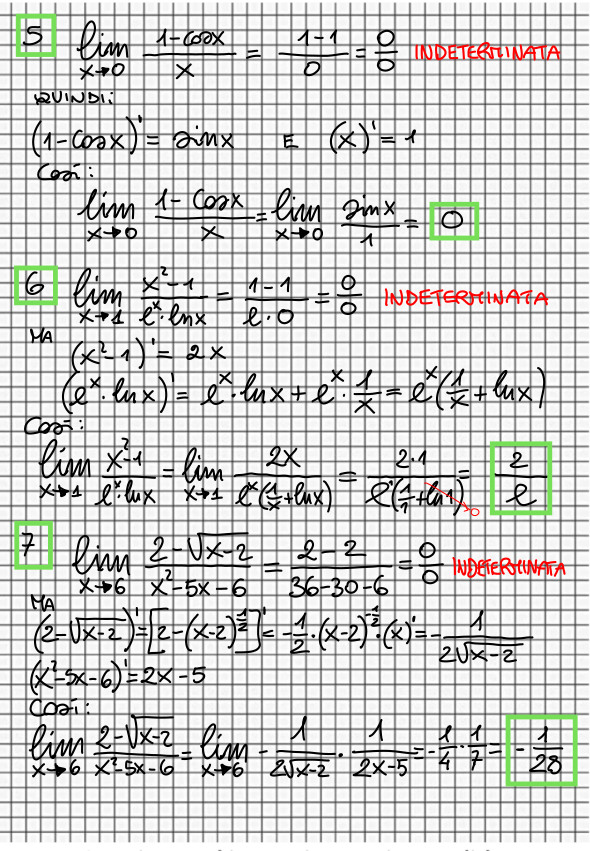 5 lim x→0 (1-cosx)/x = (1-1)/0 = 0/0 INDETERMINATA
QUINDI:
(1-cosx)' = sinx E (x)' = 1
Così:
lim x→0 (1-cosx)/x = lim x→0 sinx/1 = 0
6 lim x→1 (x²-1)/(eˣ·lnx) = (1-1)/(e·0) = 0/0 INDETERMINATA
MA
(x²-1)' = 2x
(eˣ·lnx)' = eˣ·lnx + eˣ·1/x = eˣ(1/x + lnx)
Così:
lim x→1 (x²-1)/(eˣ·lnx) = lim x→1 2x/(eˣ(1/x + lnx)) = 2·1/(e¹(1/1 + ln1)) = 2/e
0
7 lim x→6 (2-√(x-2))/(x²-5x-6) = (2-2)/(36-30-6) = 0/0 INDETERMINATA
MA
(2-√(x-2))' = [2-(x-2)^(1/2)]' = -1/2·(x-2)^(-1/2)·(x)' = -1/(2√(x-2))
(x²-5x-6)' = 2x-5
Così:
lim x→6 (2-√(x-2))/(x²-5x-6) = lim x→6 -1/(2√(x-2)) · 1/(2x-5) = -1/4·1/7 = -1/28